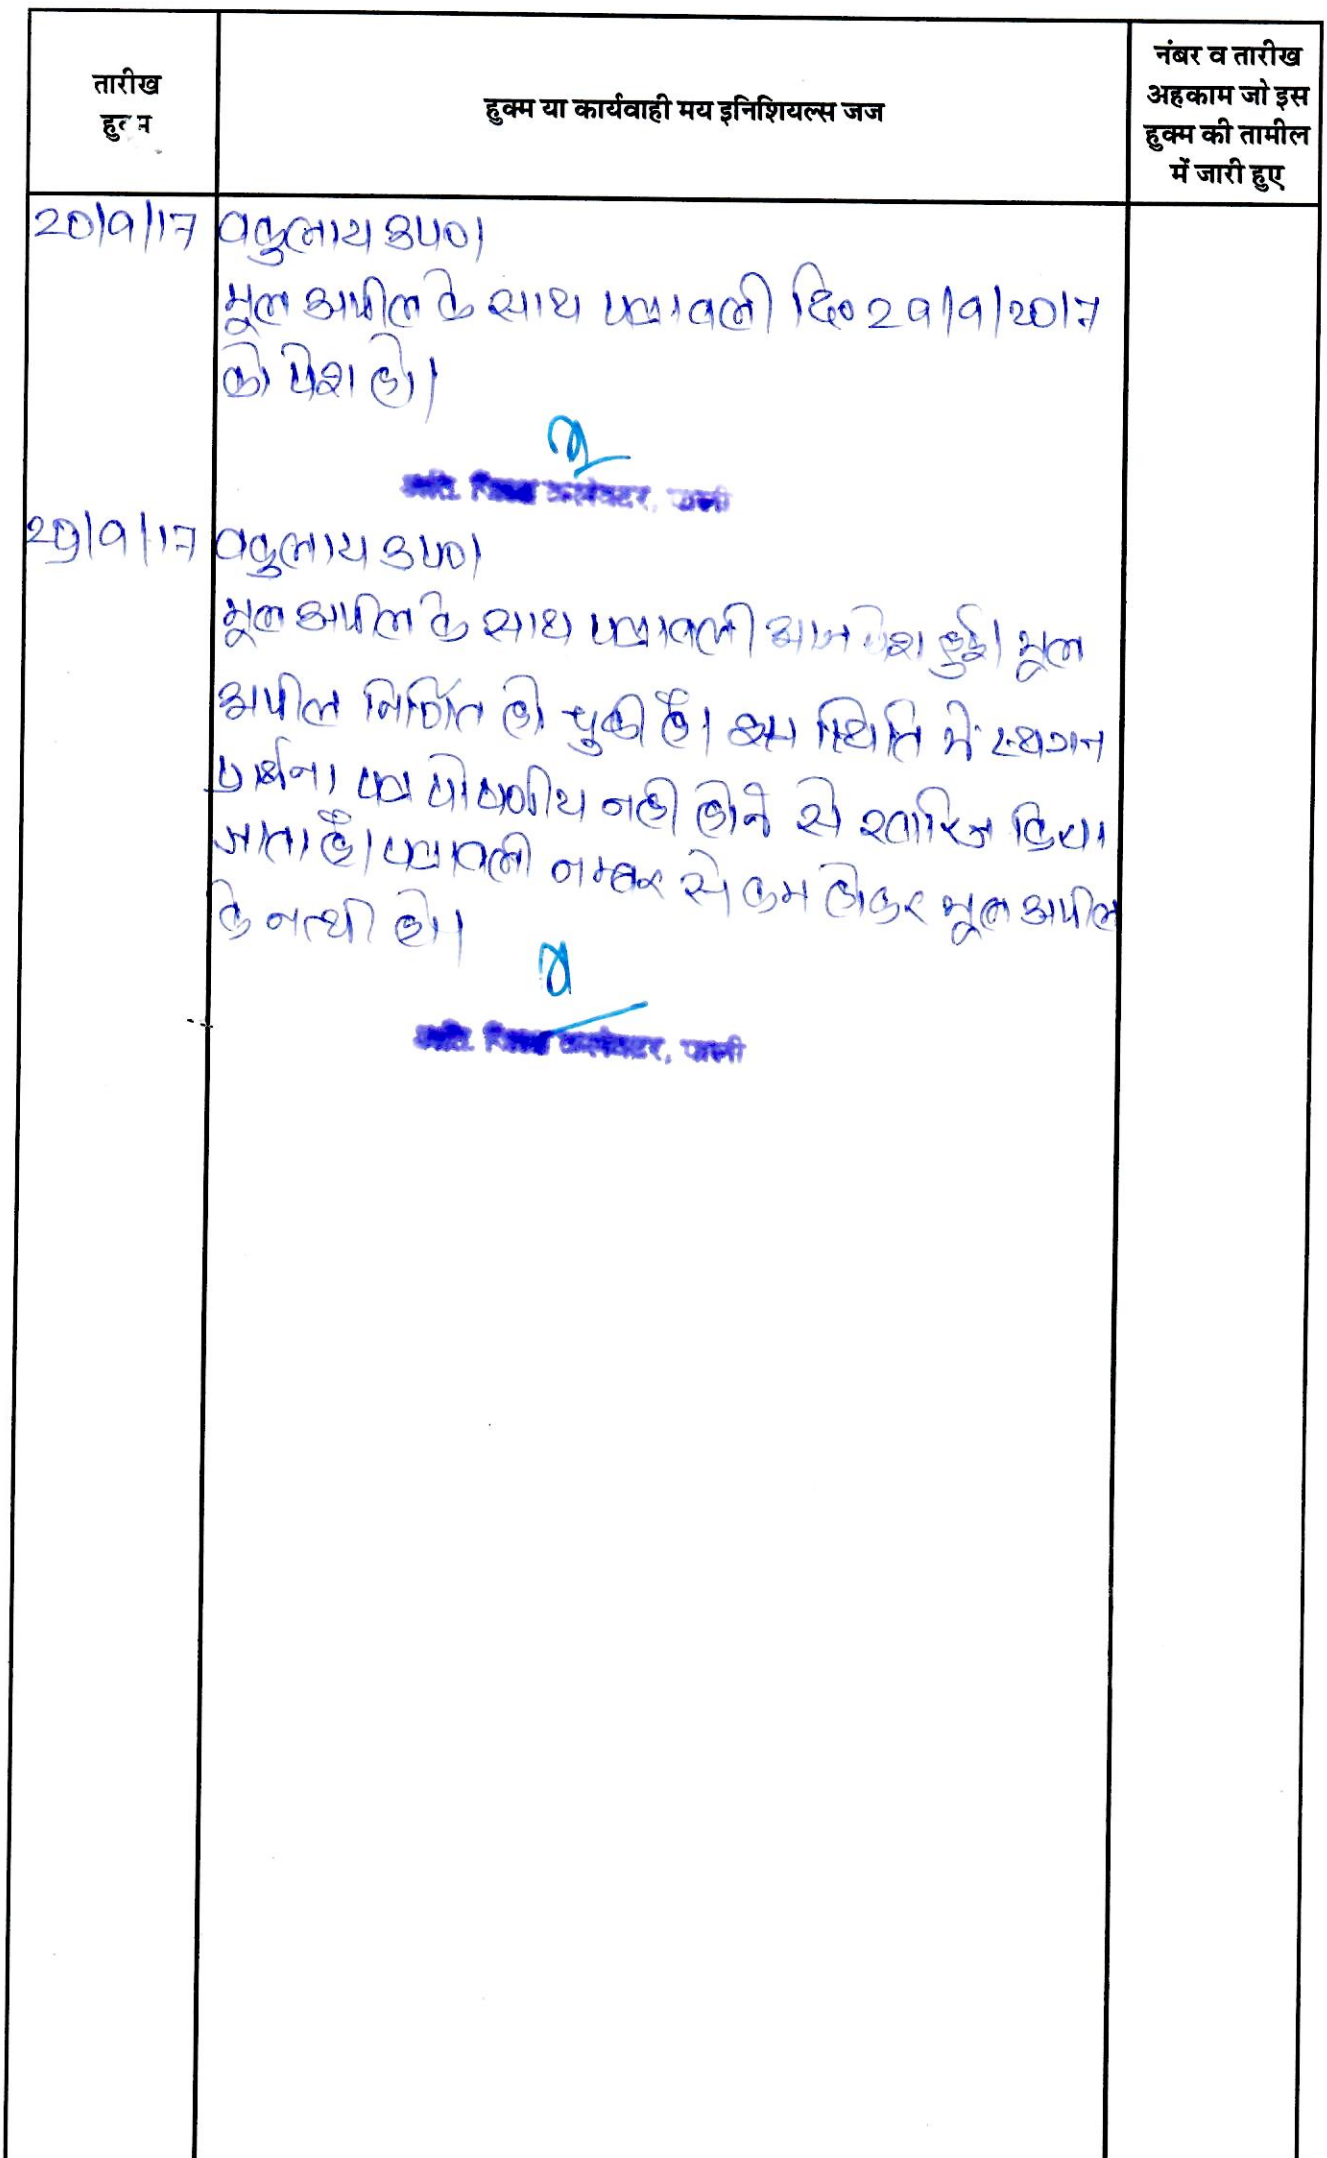 तारीख
हुक्म
हुक्म या कार्यवाही मय इनिशियल्स जज
नंबर व तारीख
अहकाम जो इस
हुक्म की तामील
में जारी हुए
20/9/17 वकुलाय उप०।
मूल अपील के साथ पत्रावली दि० 29/9/2017
को पेश हो।
अति. जिला कलेक्टर, पाली
29/9/17 वकुलाय उप०।
मूल अपील के साथ पत्रावली आज पेश हुई। मूल
अपील निर्णित हो चुकी है। इस स्थिति में स्थगन
प्रार्थना पत्र पोषणीय नही होने से खारिज किया
जाता है। पत्रावली नम्बर से कम होकर मूल अपील
के नत्थी हो।
अति. जिला कलेक्टर, पाली